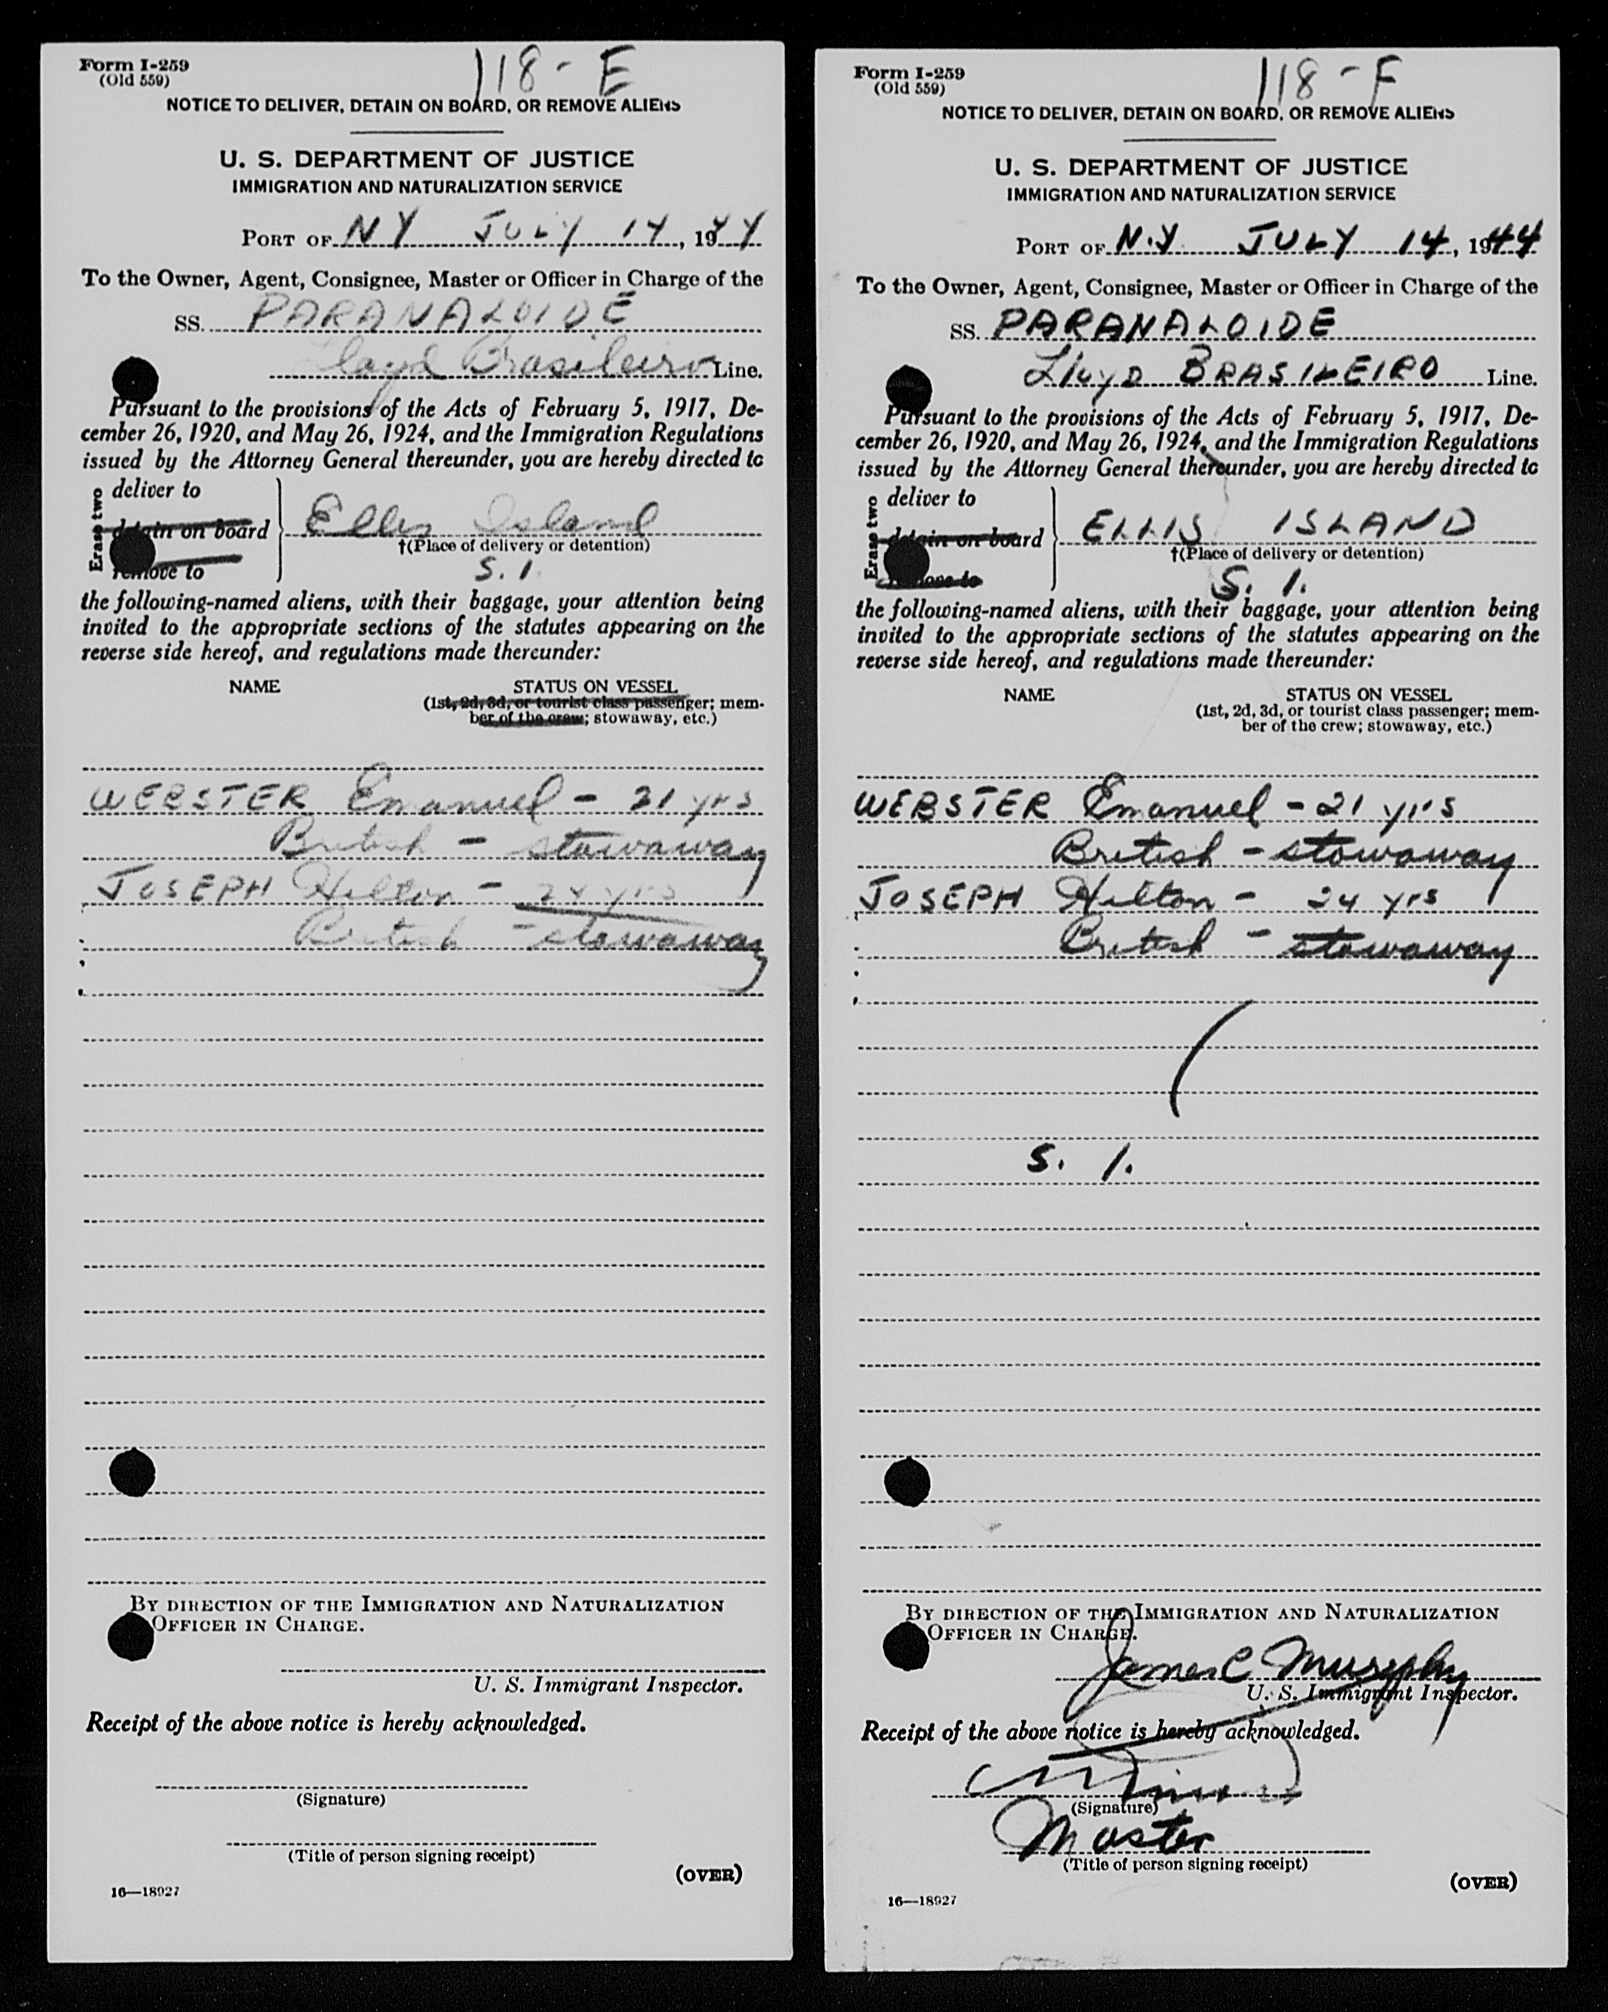 Form I-259
(Old 559)
118-E
NOTICE TO DELIVER, DETAIN ON BOARD, OR REMOVE ALIENS
U. S. DEPARTMENT OF JUSTICE
IMMIGRATION AND NATURALIZATION SERVICE
PORT OF NY JULY 14, 1944
To the Owner, Agent, Consignee, Master or Officer in Charge of the
SS. PARANALOIDE
Lloyd Brasileiro Line.
Pursuant to the provisions of the Acts of February 5, 1917, De-
cember 26, 1920, and May 26, 1924, and the Immigration Regulations
issued by the Attorney General thereunder, you are hereby directed to
Erase two
deliver to
detain on board
remove to
Ellis Island
†(Place of delivery or detention)
S. I.
the following-named aliens, with their baggage, your attention being
invited to the appropriate sections of the statutes appearing on the
reverse side hereof, and regulations made thereunder:
NAME STATUS ON VESSEL
(1st, 2d, 3d, or tourist class passenger; mem-
ber of the crew; stowaway, etc.)
WEBSTER Emanuel - 21 yrs
British - stowaway
JOSEPH Hilton - 24 yrs
British - stowaway
BY DIRECTION OF THE IMMIGRATION AND NATURALIZATION
OFFICER IN CHARGE.
U. S. Immigrant Inspector.
Receipt of the above notice is hereby acknowledged.
(Signature)
(Title of person signing receipt)
(OVER)
16—18927
Form I-259
(Old 559)
118-F
NOTICE TO DELIVER, DETAIN ON BOARD, OR REMOVE ALIENS
U. S. DEPARTMENT OF JUSTICE
IMMIGRATION AND NATURALIZATION SERVICE
PORT OF N.Y. JULY 14, 1944
To the Owner, Agent, Consignee, Master or Officer in Charge of the
SS. PARANALOIDE
Lloyd BRASILEIRO Line.
Pursuant to the provisions of the Acts of February 5, 1917, De-
cember 26, 1920, and May 26, 1924, and the Immigration Regulations
issued by the Attorney General thereunder, you are hereby directed to
Erase two
deliver to
detain on board
remove to
ELLIS ISLAND
†(Place of delivery or detention)
S. I.
the following-named aliens, with their baggage, your attention being
invited to the appropriate sections of the statutes appearing on the
reverse side hereof, and regulations made thereunder:
NAME STATUS ON VESSEL
(1st, 2d, 3d, or tourist class passenger; mem-
ber of the crew; stowaway, etc.)
WEBSTER Emanuel - 21 yrs
British - stowaway
JOSEPH Hilton - 24 yrs
British - stowaway
S. I.
BY DIRECTION OF THE IMMIGRATION AND NATURALIZATION
OFFICER IN CHARGE.
James C Murphy
U. S. Immigrant Inspector.
Receipt of the above notice is hereby acknowledged.
(Signature)
Master
(Title of person signing receipt)
(OVER)
16—18927